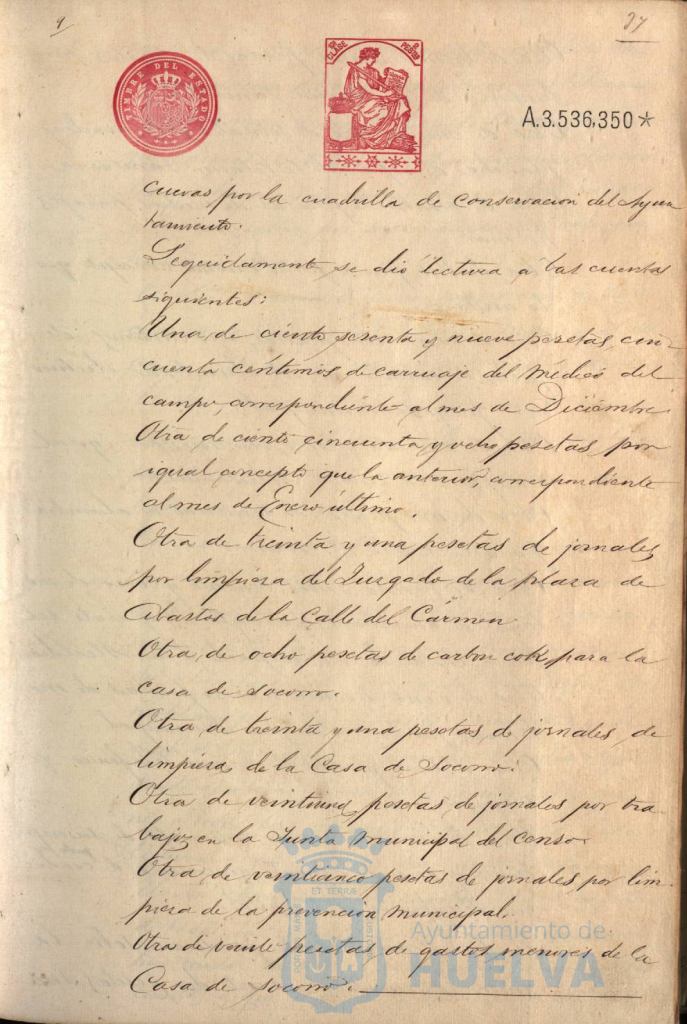 9
37
TIMBRE DEL ESTADO
CLASE
PESETAS
A.3.536,350*
cuevas por la cuadrilla de conservacion del Ayun
tamiento.
Seguidamente se dió lectura á las cuentas
siguientes:
Una de ciento sesenta y nueve pesetas, cin-
cuenta céntimos de carruaje del médico del
campo, correspondiente al mes de Diciembre
Otra de ciento cincuenta y ocho pesetas por
igual concepto que la anterior, correspondiente
al mes de Enero último.
Otra de treinta y una pesetas de jornales
por limpieza del Juzgado de la plaza de
Abastos de la Calle del Cármen
Otra de ocho pesetas de carbon cok para la
casa de socorro.
Otra de treinta y una pesetas de jornales de
limpieza de la Casa de Socorro.
Otra de veintiuna pesetas de jornales por tra
bajos en la Junta municipal del censo.
Otra de veinticinco pesetas de jornales por lim-
pieza de la prevención municipal.
Otra de veinte pesetas de gastos menores de la
Casa de socorro.
Ayuntamiento de
HUELVA